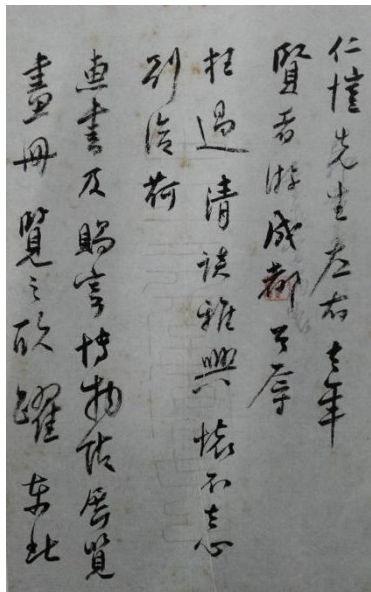 仁愷先生左右去年
賢者游成都辱
枉過清談雅興懷不去心
別後荷
惠書及賜寄博物館展覽
畫冊覽之欣躍东北